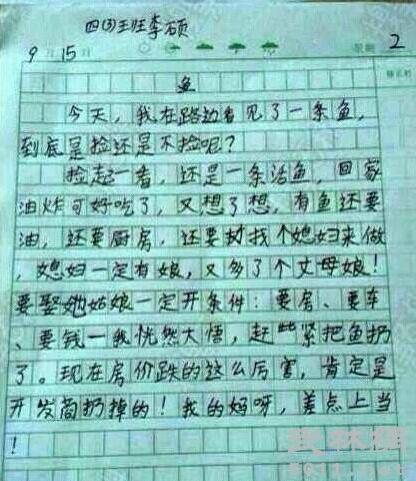 四(3)班李硕
9月15日 星期2
鱼
今天，我在路边看见了一条鱼，
到底是捡还是不捡呢？
捡起一看，还是一条活鱼，回家
油炸可好吃了，又想了想，有鱼还要
油，还要厨房，还要找个媳妇来做
，媳妇一定有娘，又多了个丈母娘！
要娶她姑娘一定开条件：要房、要车
、要钱一我恍然大悟，赶紧把鱼扔
了。现在房价跌的这么厉害，肯定是
开发商扔掉的！我的妈呀，差点上当
！